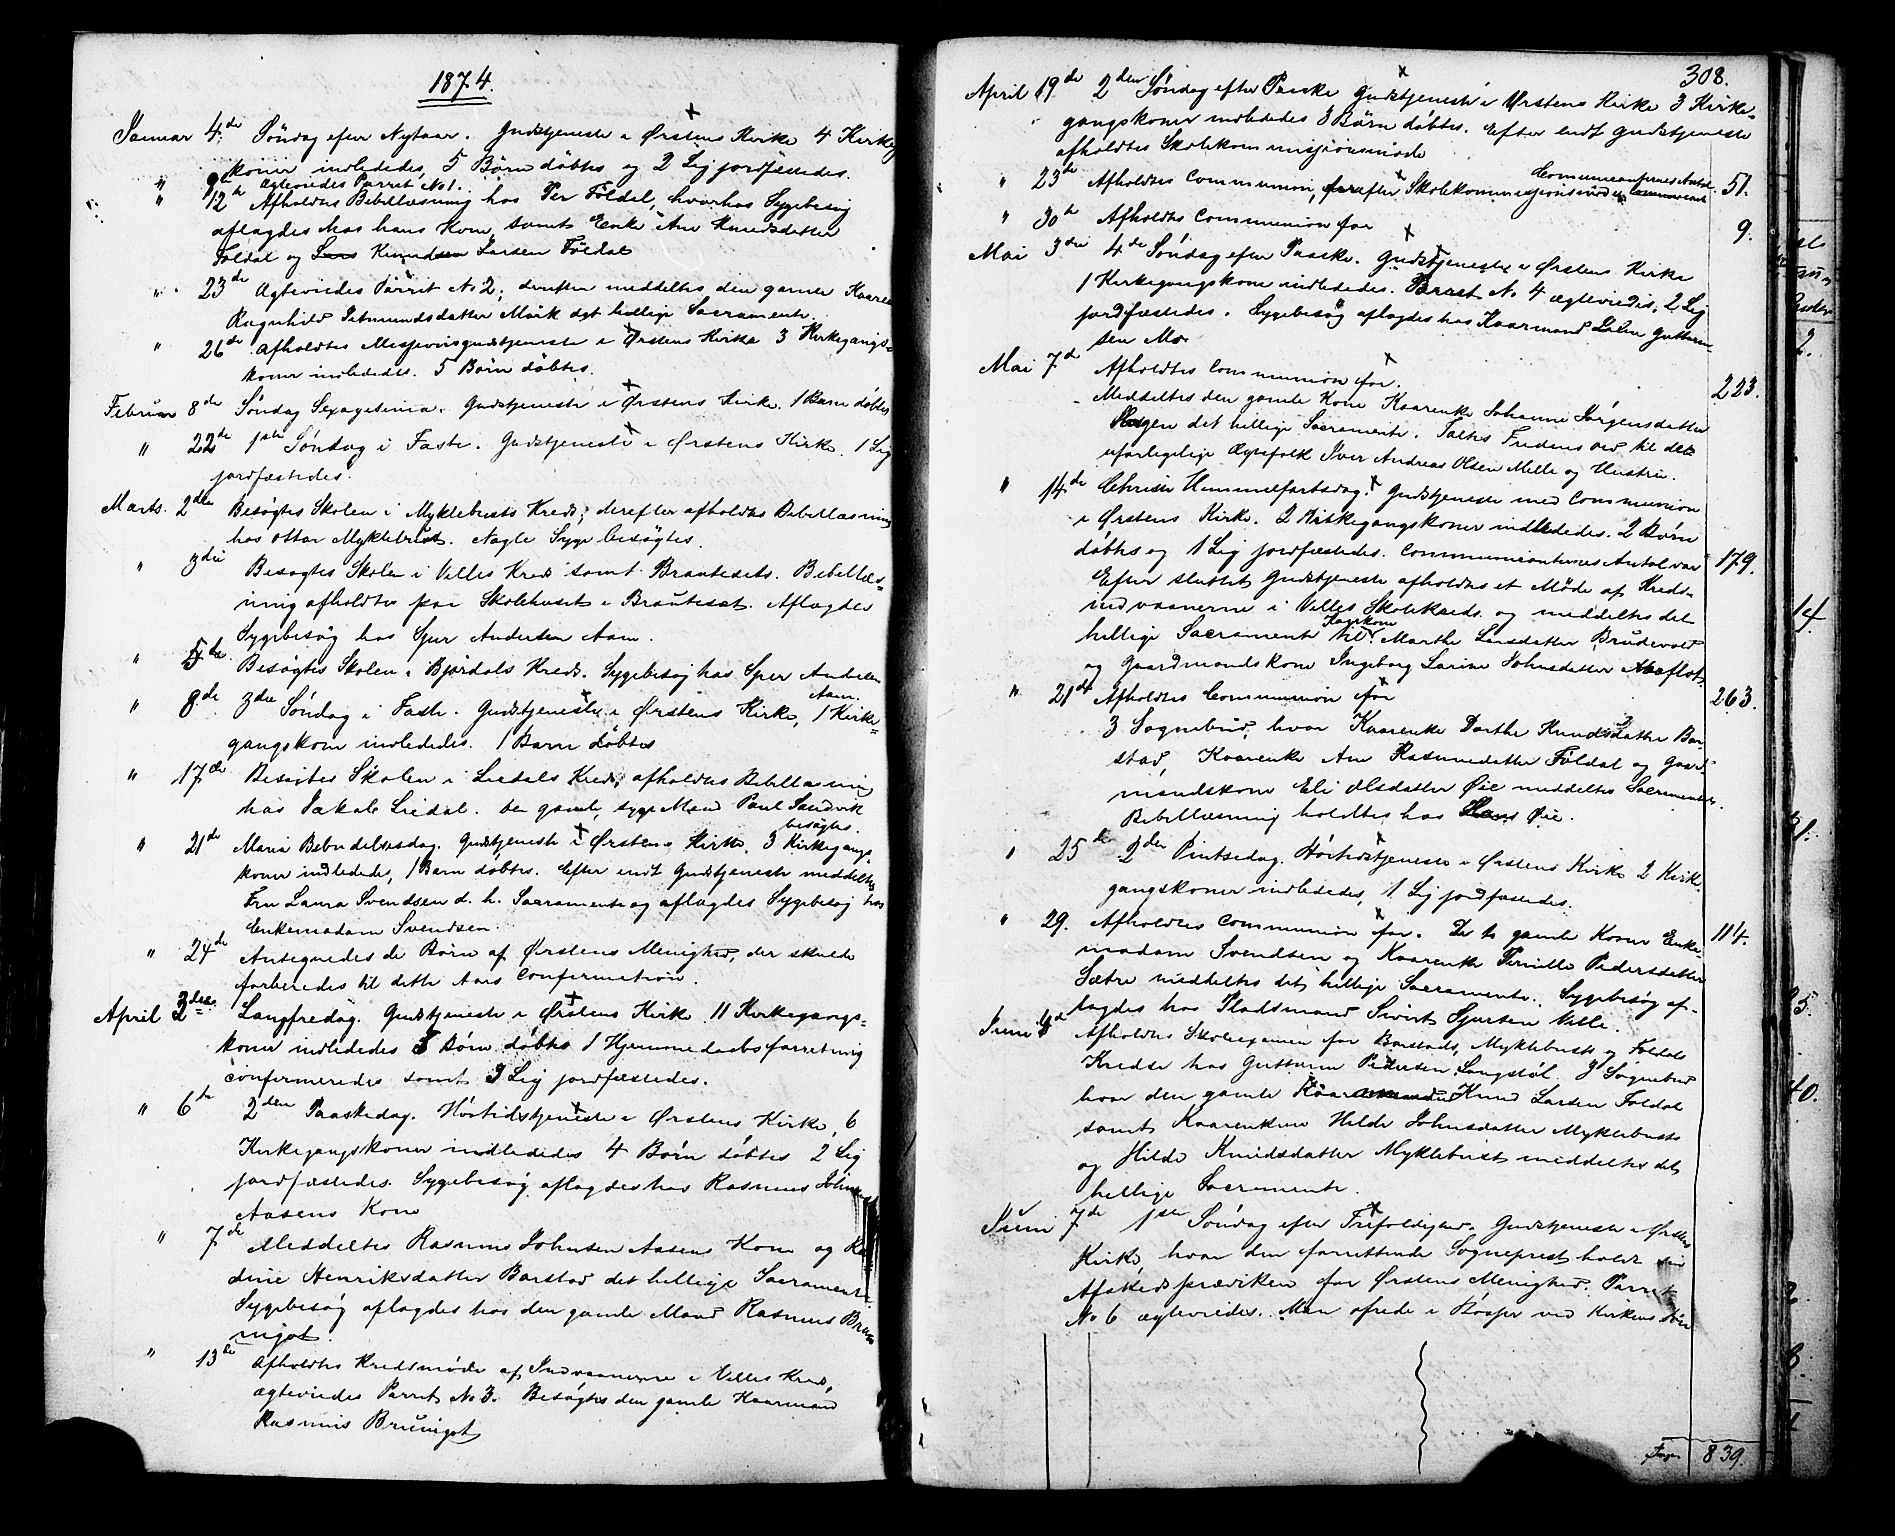 1874.
Januar 4de Søndag efter Nytaar. Gudstjeneste i Ørstens Kirke 4 Kirkeg
koner indlededes, 5 Børn døbtes og 2 Lig jordfæstedes.
" 9de Ægteviedes Parret No 1.
" 12te Afholdtes Bibellæsning hos Per Földal, hvorhos Sygebesøg
aflagdes hos hans Kone samt Enke Ane Knudsdatter
Földal og Lars Knudsen Larsen Földal
" 23de Ægteviedes Parret No 2; derefter meddeltes den gamle Kaare
Ragnhild Salmundsdatter Mörk det hellige Sacramente.
" 26de Afholdtes Missionsgudstjeneste i Ørstens Kirke 3 Kirkegangs-
koner indlededes. 5 Børn døbtes.
Februar 8de Søndag Sexagesima. Gudstjeneste i Ørstens Kirke. 1 Barn døbtes
" 22de 1ste Søndag i Faste. Gudstjeneste i Ørstens Kirke. 1 Lig
jordfæstedes.
Marts. 2den Besøgtes Skolen i Myklebusts Kreds; derefter afholdtes Bibellæsning
hos Ottar Myklebust. Nogle Syge besøgtes.
" 3die Besøgtes Skolen i Velles Kreds samt Brautesets. Bibellæs-
ning afholdtes paa Skolehuset i Brauteset. Aflagdes
Sygebesøg hos Sjur Andersen Aam.
" 5te Besøgtes Skolen i Bjørdals Kreds. Sygebesøg hos Sper Andersen
Aam.
" 8de 3die Søndag i Faste. Gudstjeneste i Ørstens Kirke, 1 Kirke-
gangskone indlededes. 1 Barn døbtes
" 17de Besøgtes Skolen i Liedals Kreds, afholdtes Bibellæsning
hos Jakob Liedal. den gamle, syge Mand Paul Sandvik
besøgtes.
" 21de Maria Bebudelsesdag. Gudstjeneste i Ørstens Kirke. 3 Kirkegangs-
koner indlededes, 1 Barn døbtes. Efter endt Gudstjeneste meddeltes
Fru Laura Svendsen d. h. Sacramente og aflagdes Sygebesøg hos
Enkemadam Svendsen.
" 24de Antegnedes de Børn af Ørstens Menighed, der skulde
forberedes til dette Aars Confirmation.
April 3die Langfredag. Gudstjeneste i Ørstens Kirke 11 Kirkegangs-
koner indlededes 8 Børn døbtes 1 Hjemmedaabsforretning
confirmeredes samt 3 Lig jordfæstedes.
" 6te 2den Paaskedag. Høitidstjeneste i Ørstens Kirke, 6
Kirkegangskoner indlededes 4 Børn døbtes 2 Lig
jordfæstedes. Sygebesøg aflagdes hos Rasmus Johnsen
Aasens Kone
" 7de Meddeltes Rasmus Johnsen Aasens Kone og Ka
drine Henriksdatter Barstad det hellige Sacramente.
Sygebesøg aflagdes hos den gamle Mand Rasmus Brun
njot.
" 13de Afholdtes Kredsmøde af Indvaanerne i Velles Kreds,
ægteviedes Parret No 3. Besøgtes den gamle Kaarmand
Rasmus Brungot
308.
April 19de 2den Søndag efter Paaske Gudstjeneste i Ørstens Kirke 3 Kirke-
gangskoner indlededes 8 Børn døbtes. Efter endt Gudstjeneste
afholdtes Skolekommissionsmøde
Communicanternes Antal
" 23de Afholdtes Communion, derefter Skolekommissionsmøde 51.
" 30te Afholdtes Communion for 9.
Mai 3die 4de Søndag efter Paaske. Gudstjeneste i Ørstens Kirke
1 Kirkegangskone indlededes. Parret No 4 ægteviedes, 2 Lig
jordfæstedes. Sygebesøg aflagdes hos Kaarmand Guttorm
sen Mo.
Mai 7de Afholdtes Communion for. 223.
Meddeltes den gamle Kone Kaarenke Johanne Jørgensdatter
Skogen det hellige Sacramente. Taltes Fredens ord til det
uforligelige Ægtefolk Iver Andreas Olsen Melle og Hustru.
" 14de Christi Himmelfartsdag. Gudstjeneste med Communion
i Ørstens Kirke. 2 Kirkegangskoner indlededes. 2 Børn
døbtes og 1 Lig jordfæstedes. Communicanternes Antal var 179.
Efter sluttet Gudstjeneste afholdtes et Møde af Kreds-
indvaanerne i Velles Skolekreds og meddeltes det
hellige Sacramente til Marthe Larsdatter Brudevold
og Gaardmandskone Ingeborg Larine Johnsdatter Aaflot.
" 21de Afholdtes Communion for 263.
3 Sognebud, hvor Kaarenke Dorthe Knudsdatter Bar-
stad, Kaarenke Ane Rasmusdatter Földal og Gaard-
mandskone Eli Olsdatter Øie meddeltes Sacramentet.
Bibellæsning holdtes hos Hans Øie.
" 25de 2den Pintsedag. Høitidstjeneste i Ørstens Kirke 2 Kirke
gangskoner indlededes, 1 Lig jordfæstedes.
" 29. Afholdtes Communion for. De to gamle Koner Enke- 114.
madam Svendsen og Kaarenke Pernille Pedersdatter
Sætre meddeltes det hellige Sacramente. Sygebesøg af-
lagdes hos Pladsmand Sivert Sjursen Velle.
Juni Afholdtes Skoleexamen for Barstads, Myklebusts og Foldals
Kredse hos Guttorm Pedersen Langstöl. 3 Sognebud
hvor den gamle Kaarmand Knud Larsen Foldal
samt Kaarenkerne Hilde Johnsdatter Myklebust
og Hilde Knudsdatter Myklebust meddeltes det
hellige Sacramente.
Juni 7de 1ste Søndag efter Trefoldighed. Gudstjeneste i Ørstens
Kirke, hvor den forrettende Sogneprest holdt sin
Afskedsprædiken for Ørstens Menighed. Parret
No 6 ægteviedes. Man ofrede i Bösser ved Kirkens Dør
839.